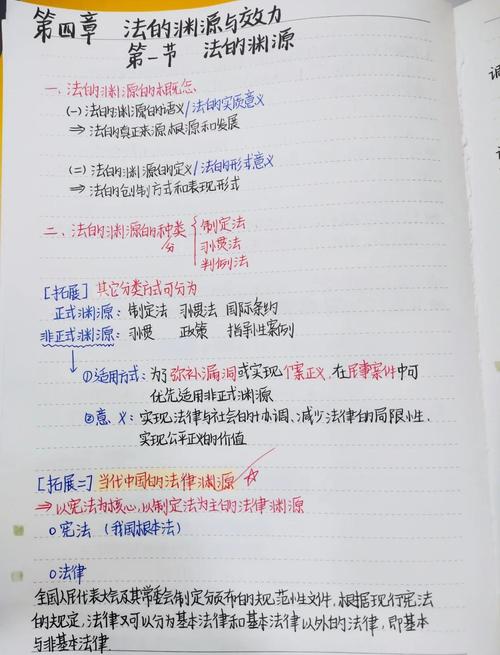 第四章 法的渊源与效力
第一节 法的渊源
一、法的渊源的概念
(一) 法的渊源的语义/法的实质意义
⇒ 法的真正来源、根源和发展
(二) 法的渊源的定义/法的形式意义
⇒ 法的创制方式和表现形式
二、法的渊源的种类 { 制定法
分 习惯法
判例法
[拓展] 其它分类方式可分为
正式渊源: 制定法 习惯法 国际条约
非正式渊源: 习惯 政策 指导性案例
①适用方式: 为了弥补漏洞或实现个案正义,在民事案件中可
优先适用非正式渊源
②意 义: 实现法律与社会的协调、减少法律的局限性、
实现公平正义的价值
[拓展二] 当代中国的法律渊源 ☆
⇒ 以宪法为核心,以制定法为主的法律渊源
o 宪法 (我国根本法)
o 法律
全国人民代表大会及其常委会制定颁布的规范性文件,根据现行宪法
的规定,法律又可以分为基本法律和基本法律以外的法律,即基本
与非基本法律
调